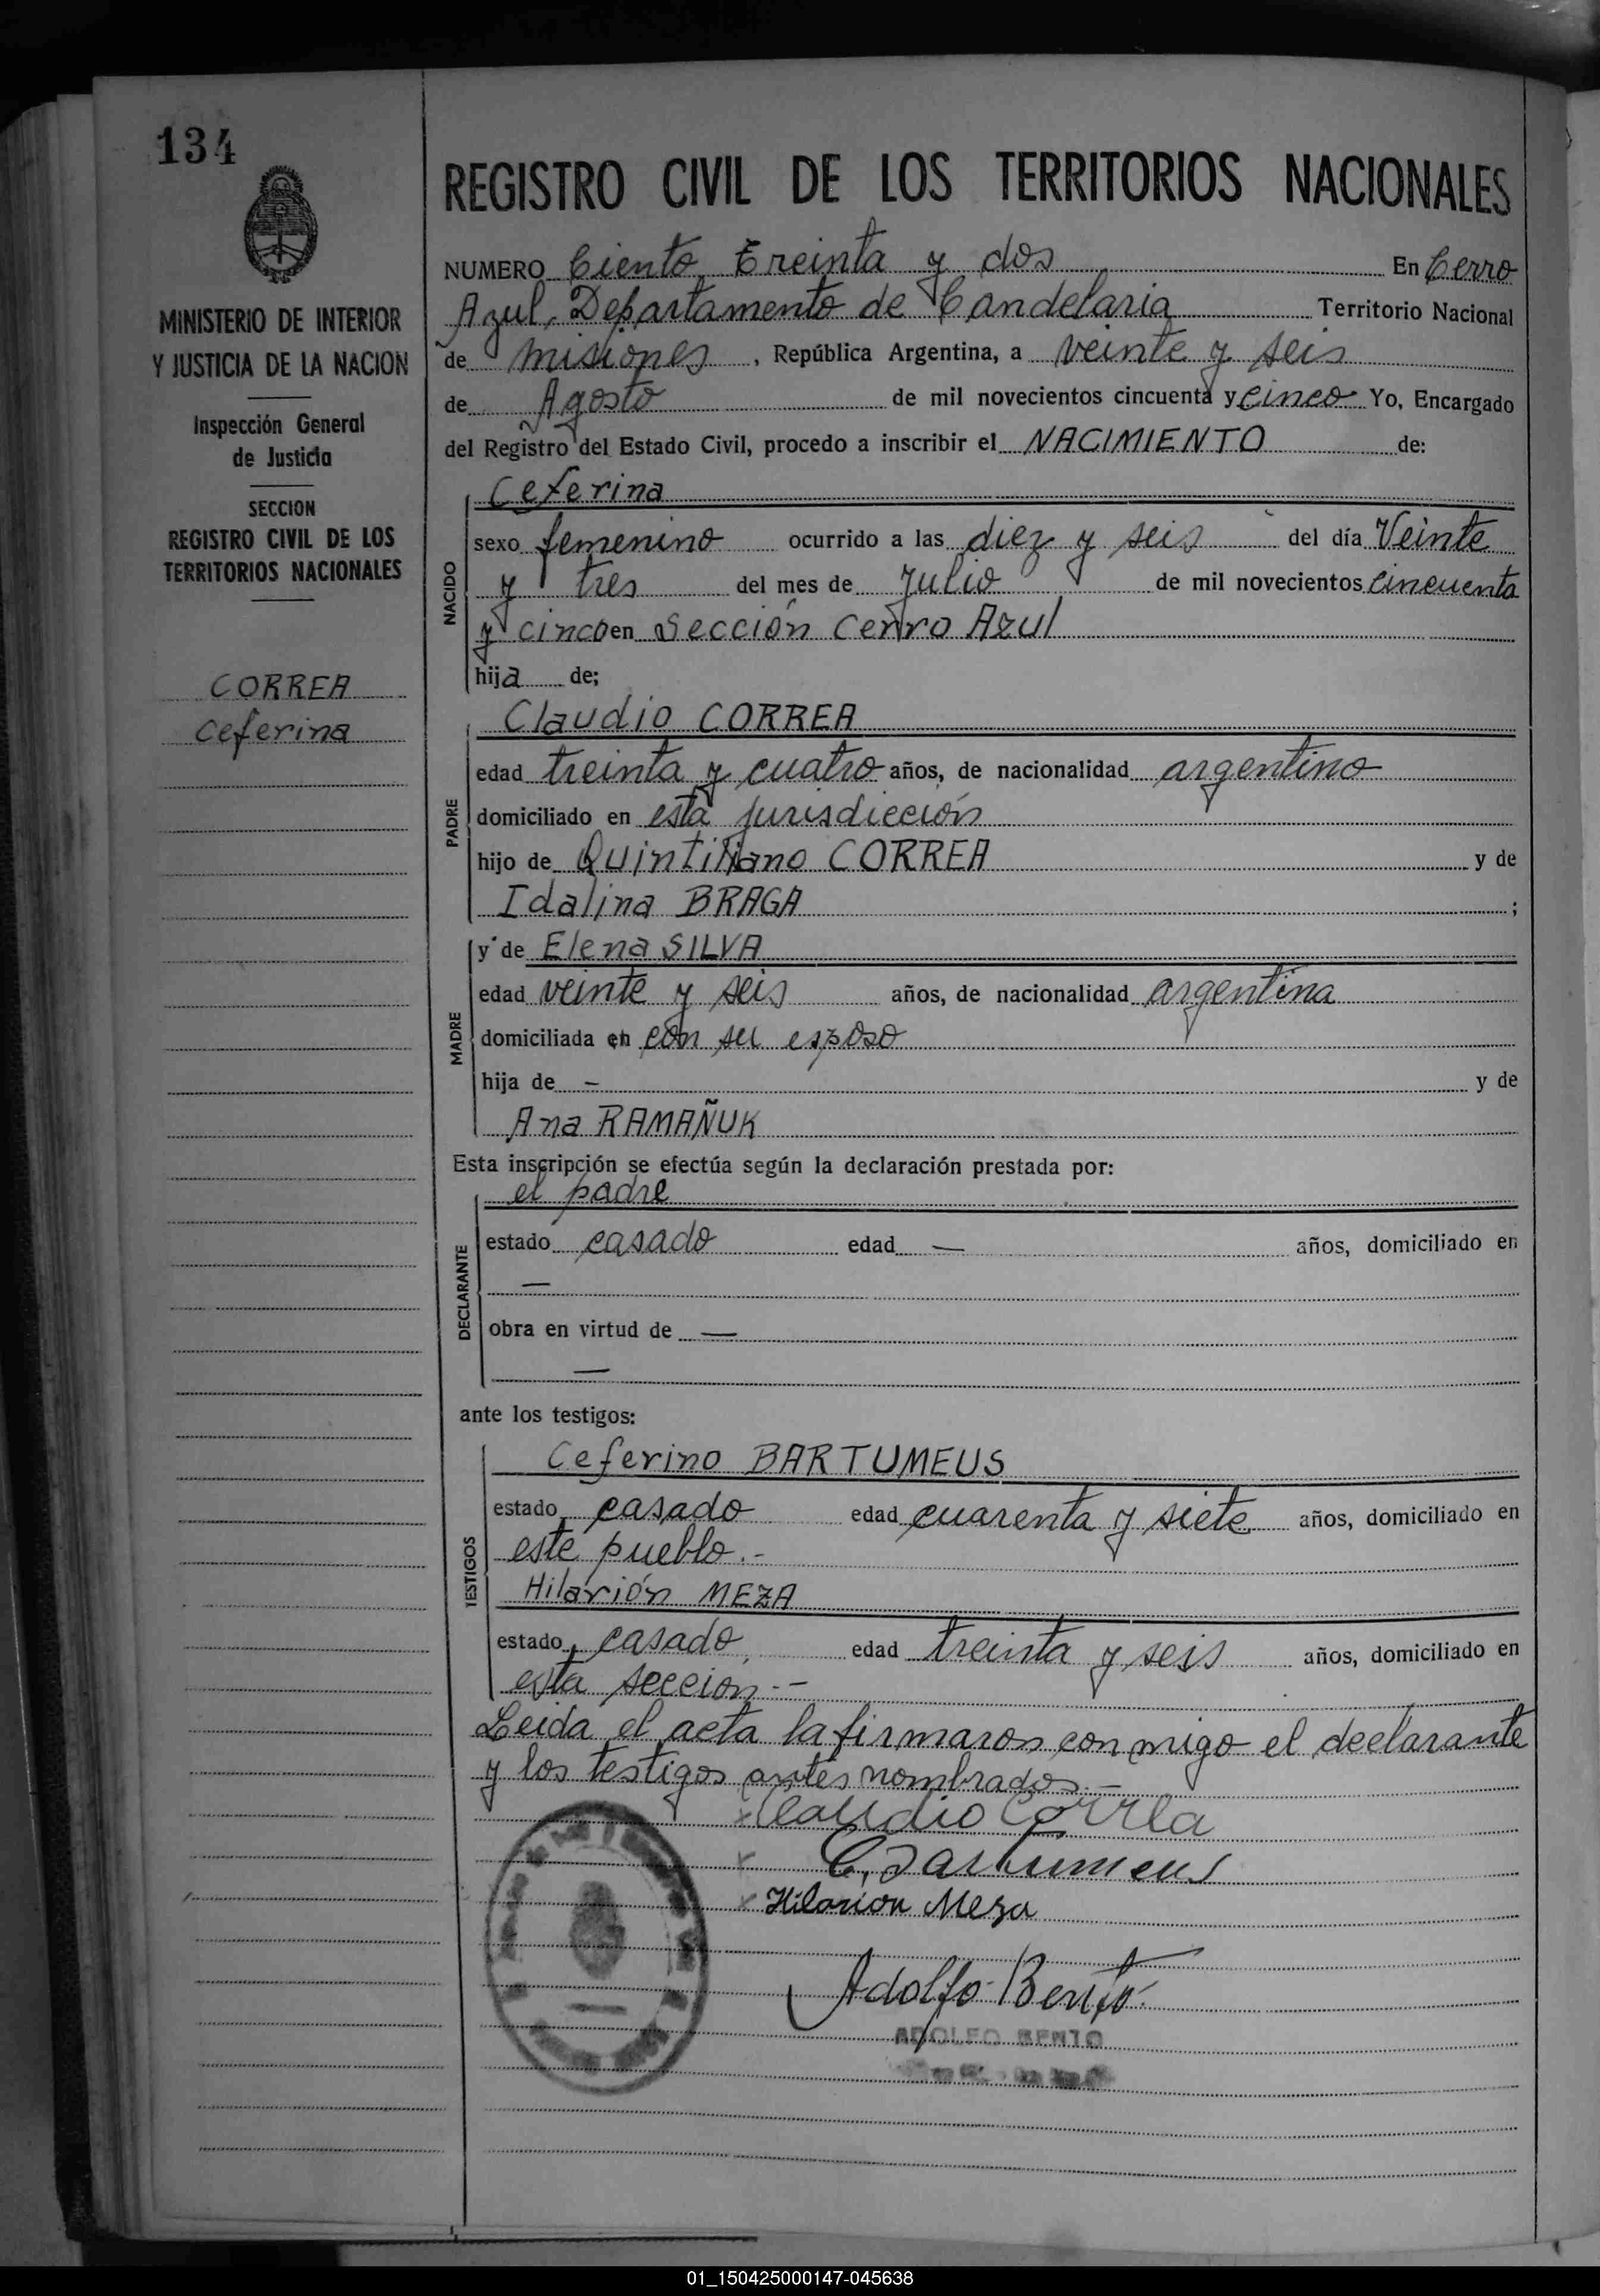 134
MINISTERIO DE INTERIOR
Y JUSTICIA DE LA NACION
Inspección General
de Justicia
SECCION
REGISTRO CIVIL DE LOS
TERRITORIOS NACIONALES
CORREA
Ceferina
REGISTRO CIVIL DE LOS TERRITORIOS NACIONALES
NUMERO Ciento Treinta y dos En Cerro
Azul, Departamento de Candelaria Territorio Nacional
de misiones, República Argentina, a veinte y seis
de Agosto de mil novecientos cincuenta y cinco Yo, Encargado
del Registro del Estado Civil, procedo a inscribir el NACIMIENTO de:
NACIDO
Ceferina
sexo femenino ocurrido a las diez y seis del día Veinte
y tres del mes de Julio de mil novecientos cincuenta
y cinco en Sección Cerro Azul
hija de;
PADRE
Claudio CORREA
edad treinta y cuatro años, de nacionalidad argentino
domiciliado en esta jurisdicción
hijo de Quintiliano CORREA y de
Idalina BRAGA ;
MADRE
y de Elena SILVA
edad veinte y seis años, de nacionalidad argentina
domiciliada en con su esposo
hija de - y de
Ana RAMAÑUK
Esta inscripción se efectúa según la declaración prestada por:
DECLARANTE
el padre
estado casado edad — años, domiciliado en
—
obra en virtud de —
—
ante los testigos:
TESTIGOS
Ceferino BARTUMEUS
estado casado edad cuarenta y siete años, domiciliado en
este pueblo.-
Hilarión MEZA
estado casado edad treinta y seis años, domiciliado en
esta sección.-
Leida el acta la firmaron conmigo el declarante
y los testigos antes nombrados.-
x Claudio Correa
x C. Bartumeus
x Hilarion Meza
Adolfo Bento
ADOLFO BENTO
01_150425000147-045638